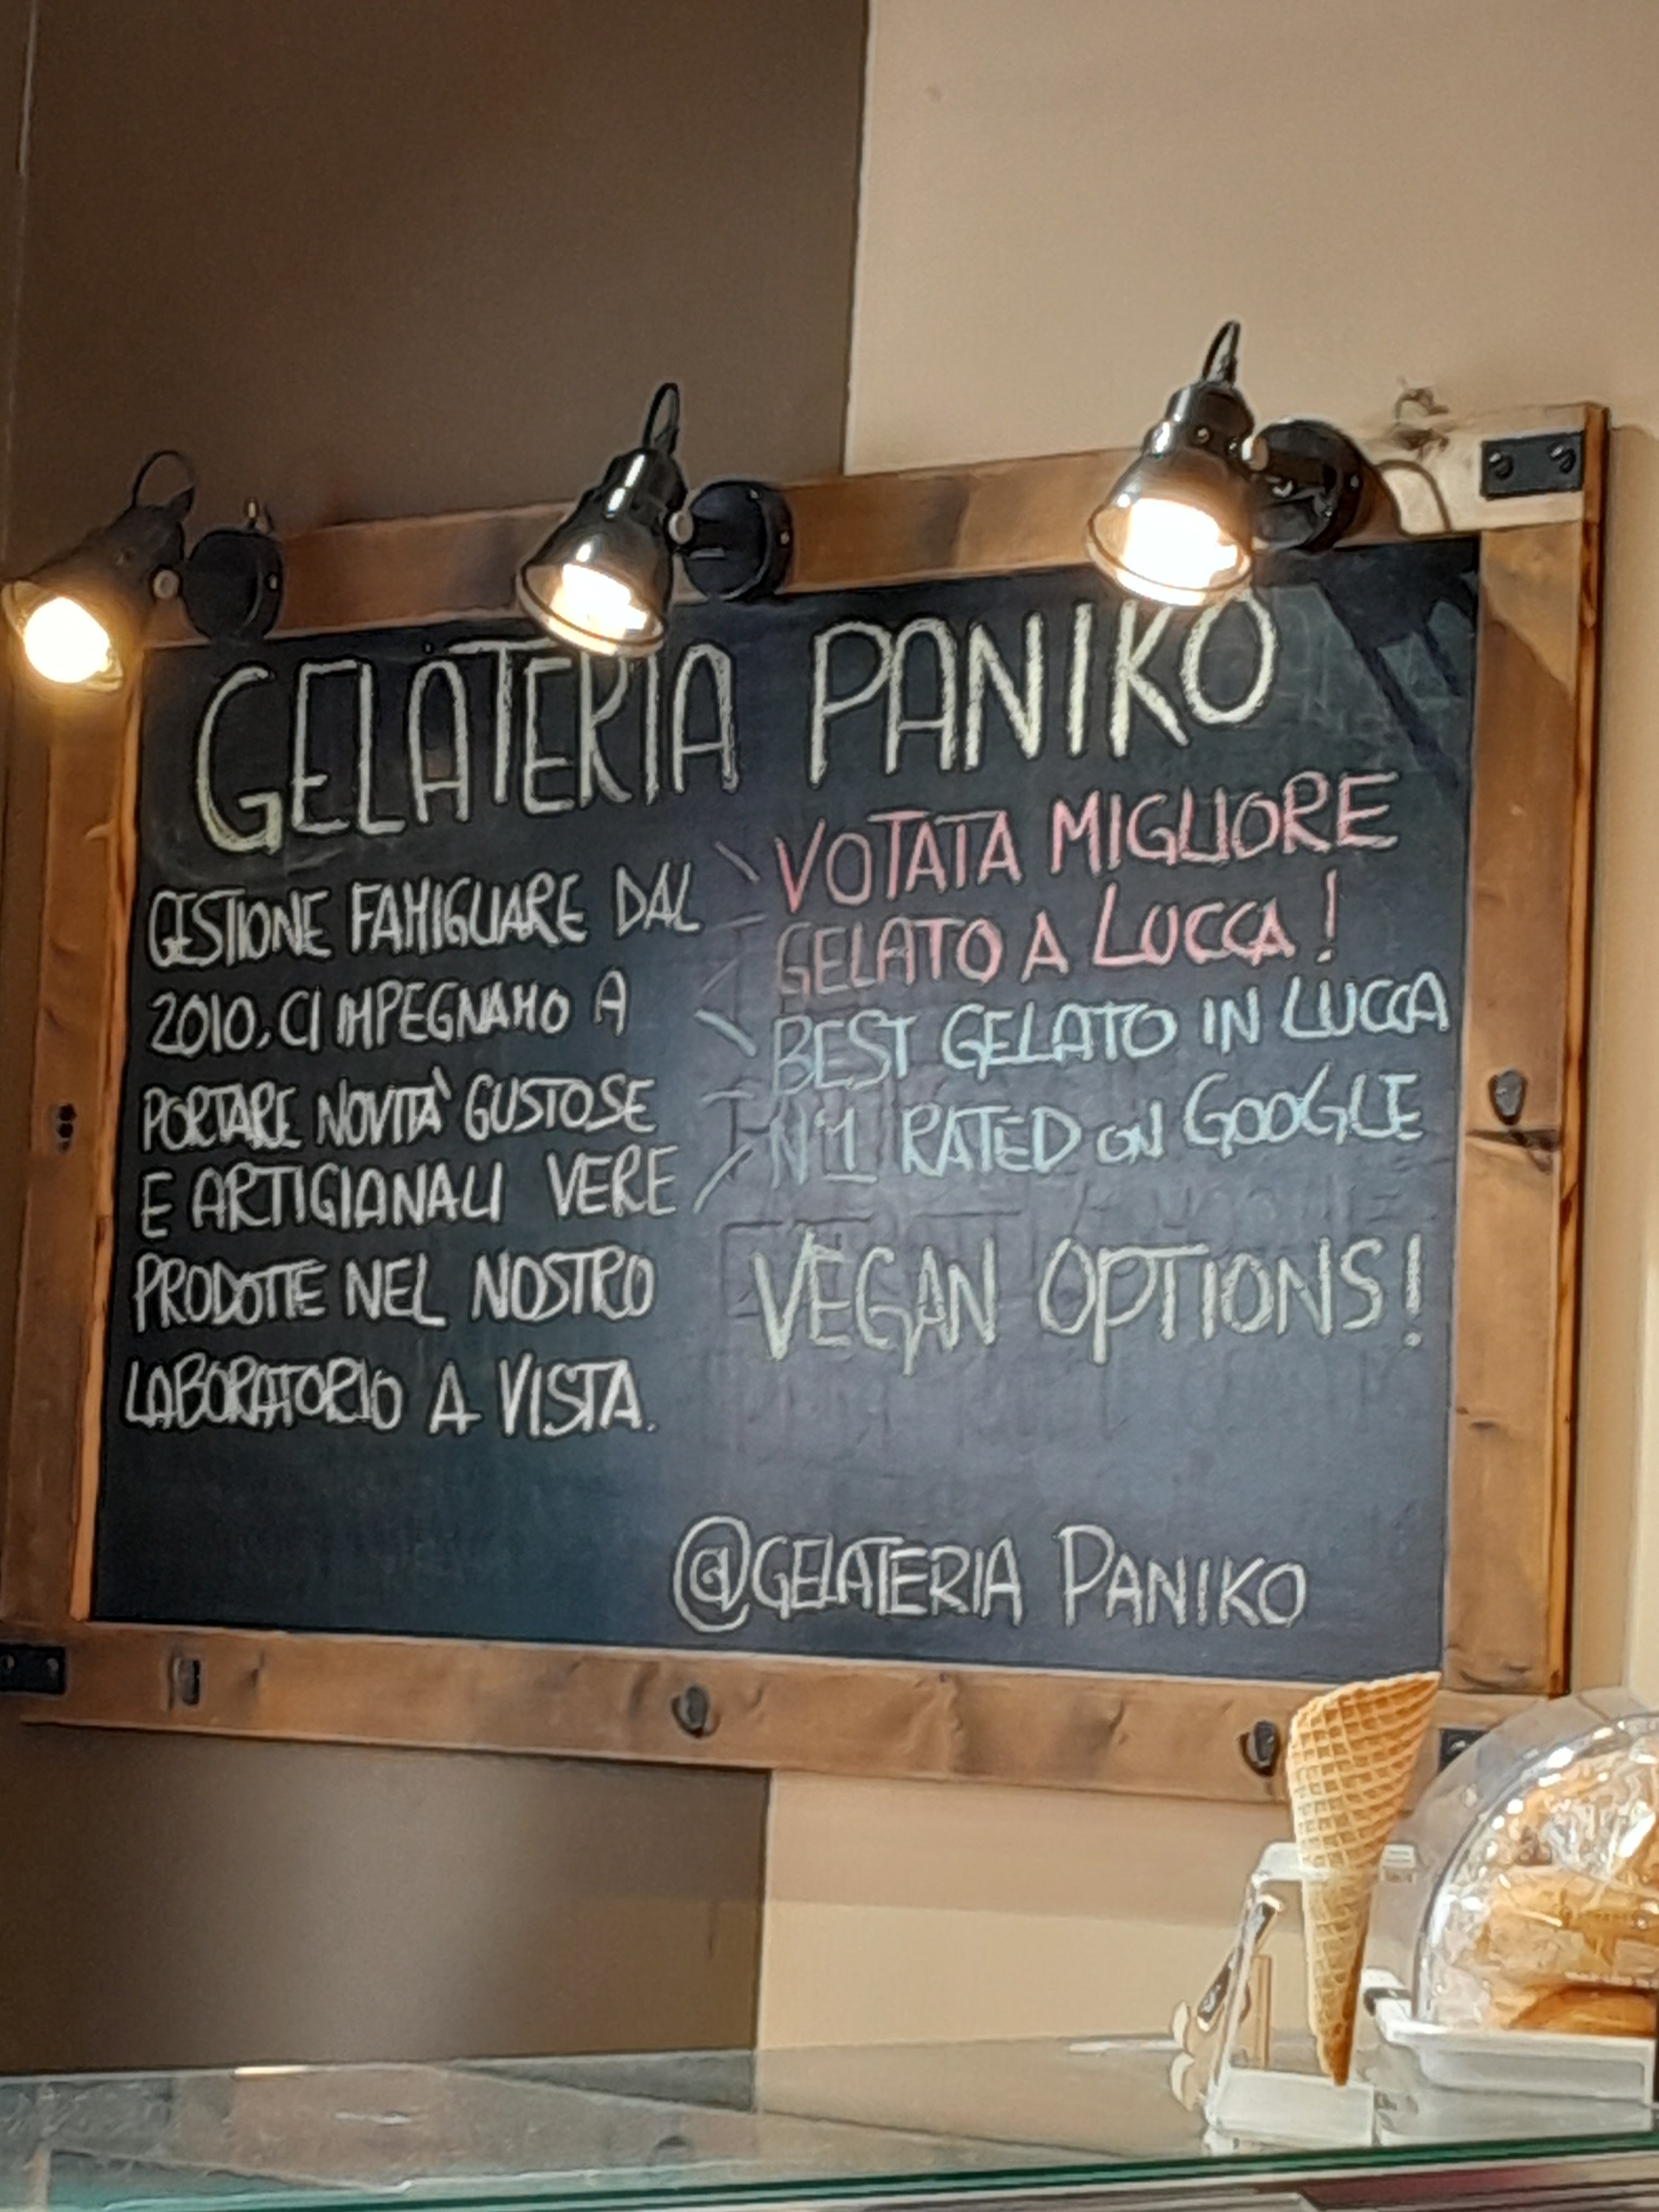 GELATERIA PANIKO
GESTIONE FAMIGLIARE DAL
2010, CI IMPEGNAMO A
PORTARE NOVITÀ GUSTOSE
E ARTIGIANALI VERE
PRODOTTE NEL NOSTRO
LABORATORIO A VISTA.
VOTATA MIGLIORE
GELATO A LUCCA!
BEST GELATO IN LUCCA
N°1 RATED ON GOOGLE
VEGAN OPTIONS!
@GELATERIA PANIKO